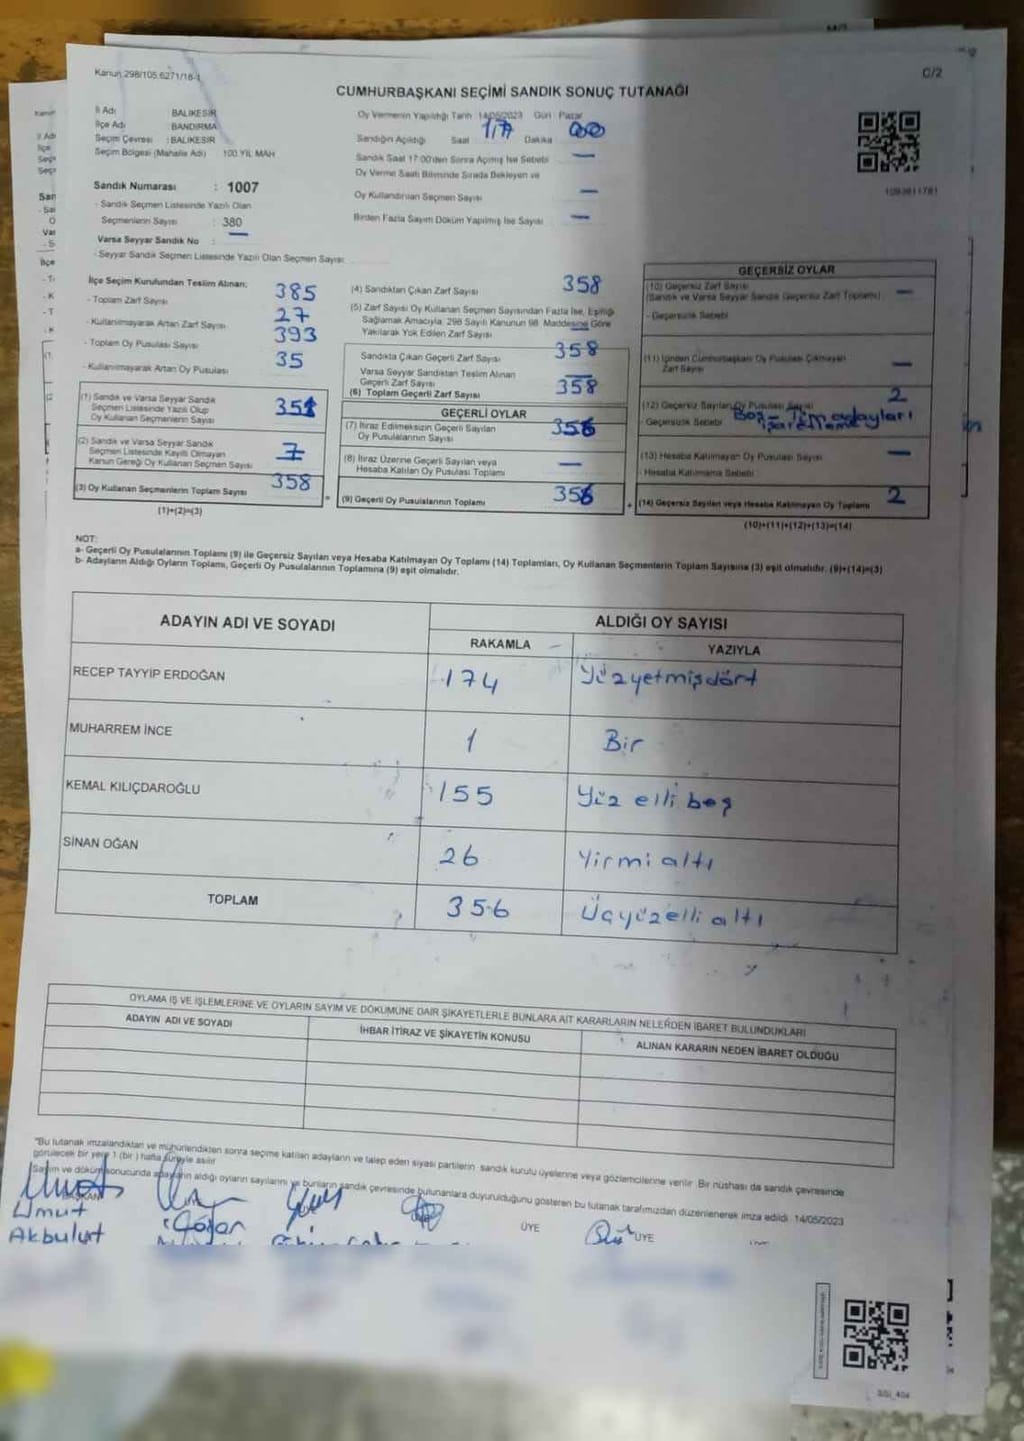 Kanun 298/105.6271/18-1
C/2
CUMHURBAŞKANI SEÇİMİ SANDIK SONUÇ TUTANAĞI
İl Adı : BALIKESİR
İlçe Adı : BANDIRMA
Seçim Çevresi : BALIKESİR
Seçim Bölgesi (Mahalle Adı) 100.YIL MAH
Sandık Numarası : 1007
- Sandık Seçmen Listesinde Yazılı Olan
Seçmenlerin Sayısı : 380
Varsa Seyyar Sandık No : —
- Seyyar Sandık Seçmen Listesinde Yazılı Olan Seçmen Sayısı:
Oy Vermenin Yapıldığı Tarih 14/05/2023 Gün: Pazar
Sandığın Açıldığı Saat 17 Dakika 00
Sandık Saat 17:00'den Sonra Açılmış İse Sebebi —
Oy Verme Saati Bitiminde Sırada Bekleyen ve
Oy Kullandırılan Seçmen Sayısı —
Birden Fazla Sayım Döküm Yapılmış İse Sayısı —
İlçe Seçim Kurulundan Teslim Alınan:
- Toplam Zarf Sayısı 385
- Kullanılmayarak Artan Zarf Sayısı 27
- Toplam Oy Pusulası Sayısı 393
- Kullanılmayarak Artan Oy Pusulası 35
(1) Sandık ve Varsa Seyyar Sandık
Seçmen Listesinde Yazılı Olup
Oy Kullanan Seçmenlerin Sayısı 351
(2) Sandık ve Varsa Seyyar Sandık
Seçmen Listesinde Kayıtlı Olmayan
Kanun Gereği Oy Kullanan Seçmen Sayısı 7
(3) Oy Kullanan Seçmenlerin Toplam Sayısı 358
(1)+(2)=(3)
(4) Sandıktan Çıkan Zarf Sayısı 358
(5) Zarf Sayısı Oy Kullanan Seçmen Sayısından Fazla İse, Eşitliği
Sağlamak Amacıyla; 298 Sayılı Kanunun 98. Maddesine Göre
Yakılarak Yok Edilen Zarf Sayısı —
Sandıkta Çıkan Geçerli Zarf Sayısı 358
Varsa Seyyar Sandıktan Teslim Alınan
Geçerli Zarf Sayısı —
(6) Toplam Geçerli Zarf Sayısı 358
GEÇERLİ OYLAR
(7) İtiraz Edilmeksizin Geçerli Sayılan
Oy Pusulalarının Sayısı 356
(8) İtiraz Üzerine Geçerli Sayılan veya
Hesaba Katılan Oy Pusulası Toplamı —
(9) Geçerli Oy Pusulalarının Toplamı 356
GEÇERSİZ OYLAR
(10) Geçersiz Zarf Sayısı
(Sandık ve Varsa Seyyar Sandık Geçersiz Zarf Toplamı) —
- Geçersizlik Sebebi
(11) İçinden Cumhurbaşkanı Oy Pusulası Çıkmayan
Zarf Sayısı —
(12) Geçersiz Sayılan Oy Pusulası Sayısı 2
- Geçersizlik Sebebi Boş - Tüm adayları
(13) Hesaba Katılmayan Oy Pusulası Sayısı —
- Hesaba Katılmama Sebebi
(14) Geçersiz Sayılan veya Hesaba Katılmayan Oy Toplamı 2
(10)+(11)+(12)+(13)=(14)
NOT:
a- Geçerli Oy Pusulalarının Toplamı (9) ile Geçersiz Sayılan veya Hesaba Katılmayan Oy Toplamı (14) Toplamları, Oy Kullanan Seçmenlerin Toplam Sayısına (3) eşit olmalıdır. (9)+(14)=(3)
b- Adayların Aldığı Oyların Toplamı, Geçerli Oy Pusulalarının Toplamına (9) eşit olmalıdır.
ADAYIN ADI VE SOYADI ALDIĞI OY SAYISI
RAKAMLA YAZIYLA
RECEP TAYYİP ERDOĞAN 174 Yüzyetmişdört
MUHARREM İNCE 1 Bir
KEMAL KILIÇDAROĞLU 155 Yüz elli beş
SİNAN OĞAN 26 Yirmi altı
TOPLAM 356 Üçyüzelli altı
OYLAMA İŞ VE İŞLEMLERİNE VE OYLARIN SAYIM VE DÖKÜMÜNE DAİR ŞİKAYETLERLE BUNLARA AİT KARARLARIN NELERDEN İBARET BULUNDUKLARI
ADAYIN ADI VE SOYADI İHBAR İTİRAZ VE ŞİKAYETİN KONUSU ALINAN KARARIN NEDEN İBARET OLDUĞU
*Bu tutanak imzalandıktan ve mühürlendikten sonra seçime katılan adayların ve talep eden siyasi partilerin sandık kurulu üyelerine veya gözlemcilerine verilir. Bir nüshası da sandık çevresinde
görülecek bir yere 1 (bir) hafta süreyle asılır.
Sayım ve döküm sonucunda adayların aldığı oyların sayılarını ve bunların sandık çevresinde bulunanlara duyurulduğunu gösteren bu tutanak tarafımızdan düzenlenerek imza edildi. 14/05/2023
BAŞKAN ÜYE ÜYE
Umut
Akbulut